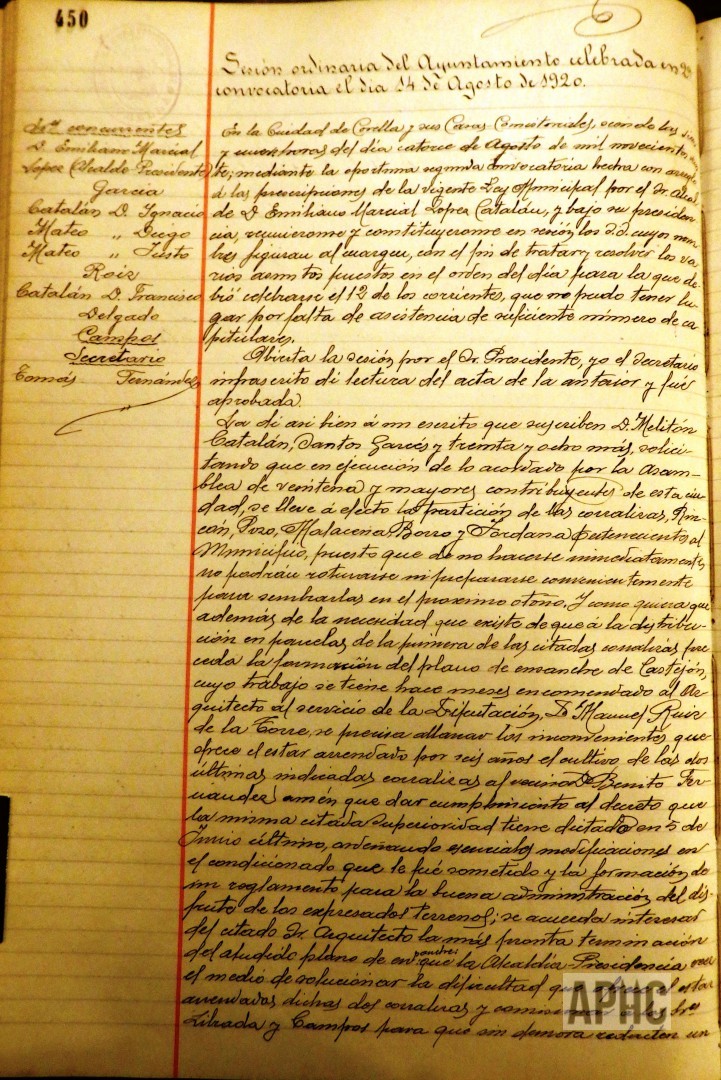 450
Sesión ordinaria del Ayuntamiento celebrada en 2ª
convocatoria el dia 14 de Agosto de 1920.
Sres concurrentes
D. Emiliano Marcial
Lopez (Alcalde Presidente)
García
Catalán D. Ignacio
Mateo „ Diego
Mateo „ Justo
Roiz
Catalán D. Francisco
Delgado
Campos
Secretario
Tomás Fernández
En la Ciudad de Corella y sus Casas Consistoriales, siendo las
y cuarenta del día catorce de Agosto de mil novecientos
te; mediante la oportuna segunda convocatoria hecha con arreglo
á las prescripciones de la vigente Ley Municipal por el Sr. Alcal
de D Emiliano Marcial Lopez Catalán, y bajo su presiden
cia, reunieronse y constituyeronse en sesión los S.S. cuyos nom
bres figuran al margen, con el fin de tratar y resolver los va
rios asuntos puestos en el orden del día para la que de
bió celebrarse el 12 de los corrientes, que no pudo tener lu
gar por falta de asistencia de suficiente número de ca
pitulares.
Abierta la sesión por el Sr. Presidente, yo el Secretario
infrascrito di lectura del acta de la anterior y fué
aprobada.
La di asi bien á un escrito que suscriben D. Melitón
Catalán, Santos Garcés y treinta y ocho más, solici
tando que en ejecución de lo acordado por la Asam
blea de veintena y mayores contribuyentes de esta ciu
dad, se lleve á efecto la partición de las corralizas, Rin
cón, Pozo, y Jordana pertenecientes al
Municipio, puesto que de no hacerse inmediatamente,
no podrán roturarse ni prepararse convenientemente
para sembrarlas en el proximo otoño. Y como quiera que
además de la necesidad que existe de que á la distribu
ción en parcelas de la primera de las citadas corralizas pre
ceda la formación del plano de ensanche de Castejón,
cuyo trabajo se tiene hace meses encomendado al Ar
quitecto al servicio de la Diputación, D. Manuel Ruiz
de la Torre, se precisa allanar los inconvenientes que
ofrece el estar arrendado por seis años el cultivo de las dos
últimas indicadas corralizas al vecino D. Benito Fer
nandez amén que dar cumplimiento al decreto que
la misma citada Superioridad tiene dictado en 5 de
Junio último, ordenando esenciales modificaciones en
el condicionado que le fué sometido y la formación de
un reglamento para la buena administración del dis
frute de los expresados terrenos; se acuerda interesar
del citado Sr. Arquitecto la más pronta terminación
del aludido plano de que la Alcaldía-Presidencia vea
el medio de solucionar la dificultad que ofrece el estar
arrendadas dichas dos corralizas y comisionar á los Sres
Librada y Campos para que sin demora redacten un
APHC